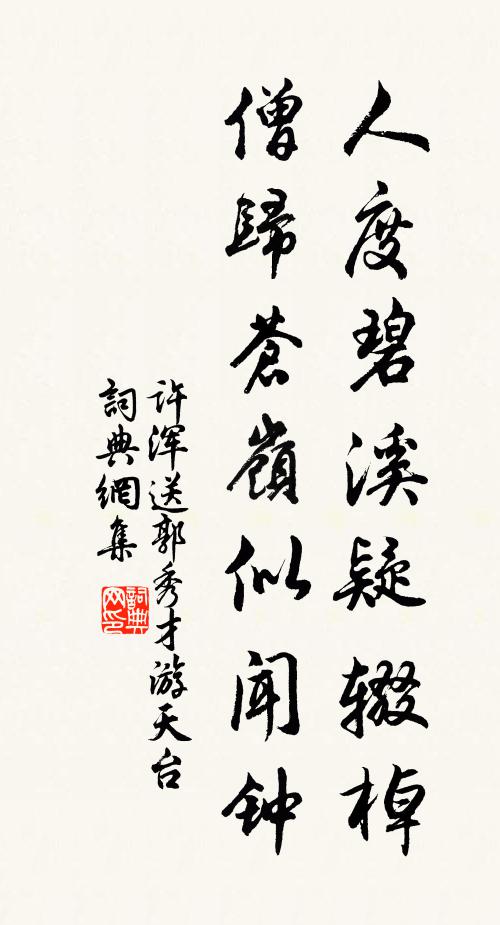 人度碧溪疑辍棹
僧歸苍嶺似闻钟
许浑送郭秀才游天台
詞典網集
詞典
网印